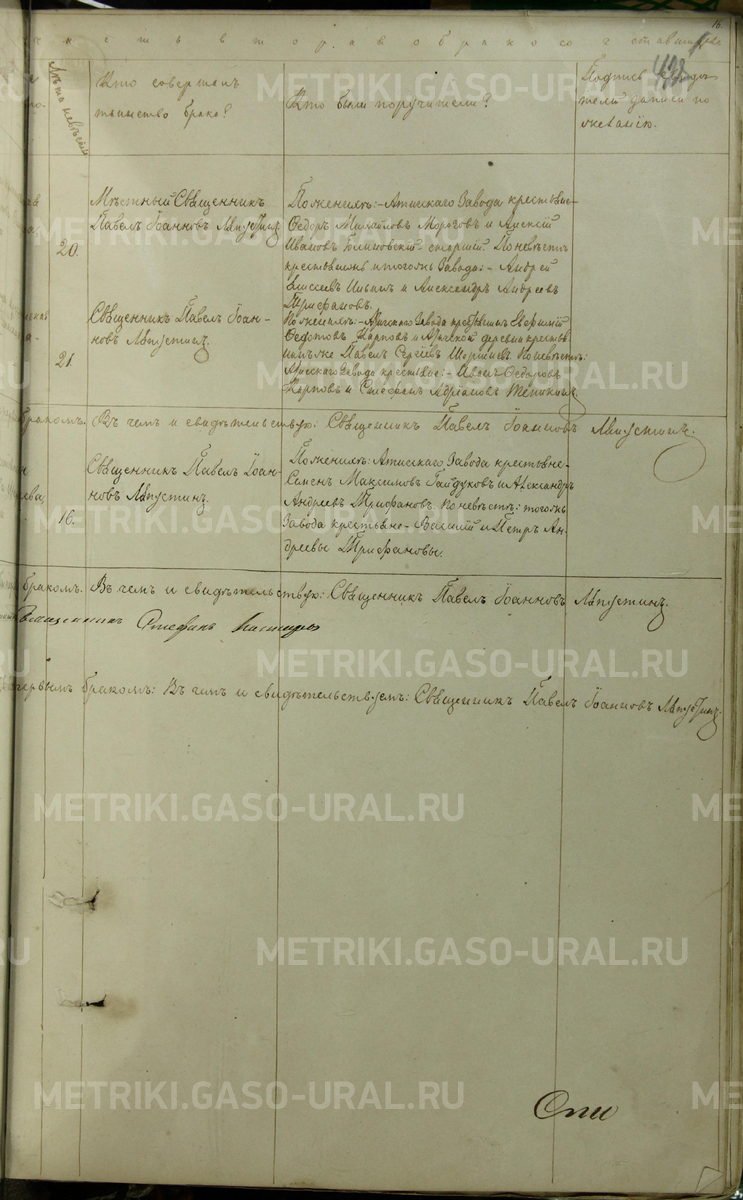 16.
часть вторая о бракосочетавшихся
438
Лѣта невѣсты
Кто совершалъ
таинство брака?
Кто были поручители?
Подпись свидѣ-
телей записи по
желанію.
Мѣстный Священникъ
Павелъ Іоанновъ Ляпустинъ
20.
По женихѣ: Атигскаго Завода крестьяне
Ѳедоръ Михайловъ и Алексѣй
Ивановъ старшій. По невѣстѣ
крестьяне того же Завода: Андрей
Елисеевъ и Александръ Андреевъ
Трифановъ.
Священникъ Павелъ Іоан-
новъ Ляпустинъ.
21.
По женихѣ: Атигскаго Завода крестьянинъ
Ѳедотовъ Карповъ и деревни крестья-
нинъ Павелъ Сергѣевъ По невѣстѣ:
Атигскаго Завода крестьяне: Иванъ Ѳедоровъ
Карповъ и Стефанъ Адріановъ
бракомъ. Въ чемъ и свидѣтельствую: Священникъ Павелъ Іоанновъ Ляпустинъ.
Священникъ Павелъ Іоан-
новъ Ляпустинъ.
16.
По женихѣ: Атигскаго Завода крестьяне
Семенъ Максимовъ Гайдуковъ и Александръ
Андреевъ Трифановъ. По невѣстѣ: того же
Завода крестьяне Василій и Петръ Ан-
дреевы Трифановы.
бракомъ. Въ чемъ и свидѣтельствую: Священникъ Павелъ Іоанновъ Ляпустинъ.
Священникъ Стефанъ
первымъ бракомъ: Въ чемъ и свидѣтельствуемъ: Священникъ Павелъ Іоанновъ Ляпустинъ.
METRIKI.GASO-URAL.RU